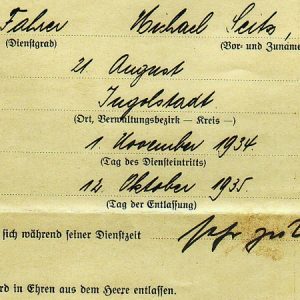 Fahrer Michael Seitz,
(Dienstgrad) (Vor- und Zuname
21. August
Ingolstadt.
(Ort, Verwaltungsbezirk — Kreis —)
1. November 1934.
(Tag des Diensteintritts)
12. Oktober 1935
(Tag der Entlassung)
sich während seiner Dienstzeit sehr gut
rd in Ehren aus dem Heere entlassen.